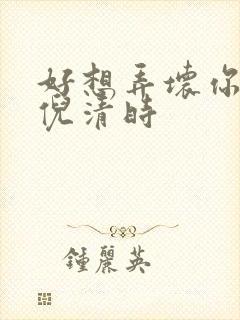 好想弄壞你
倪清時
鍾麗英